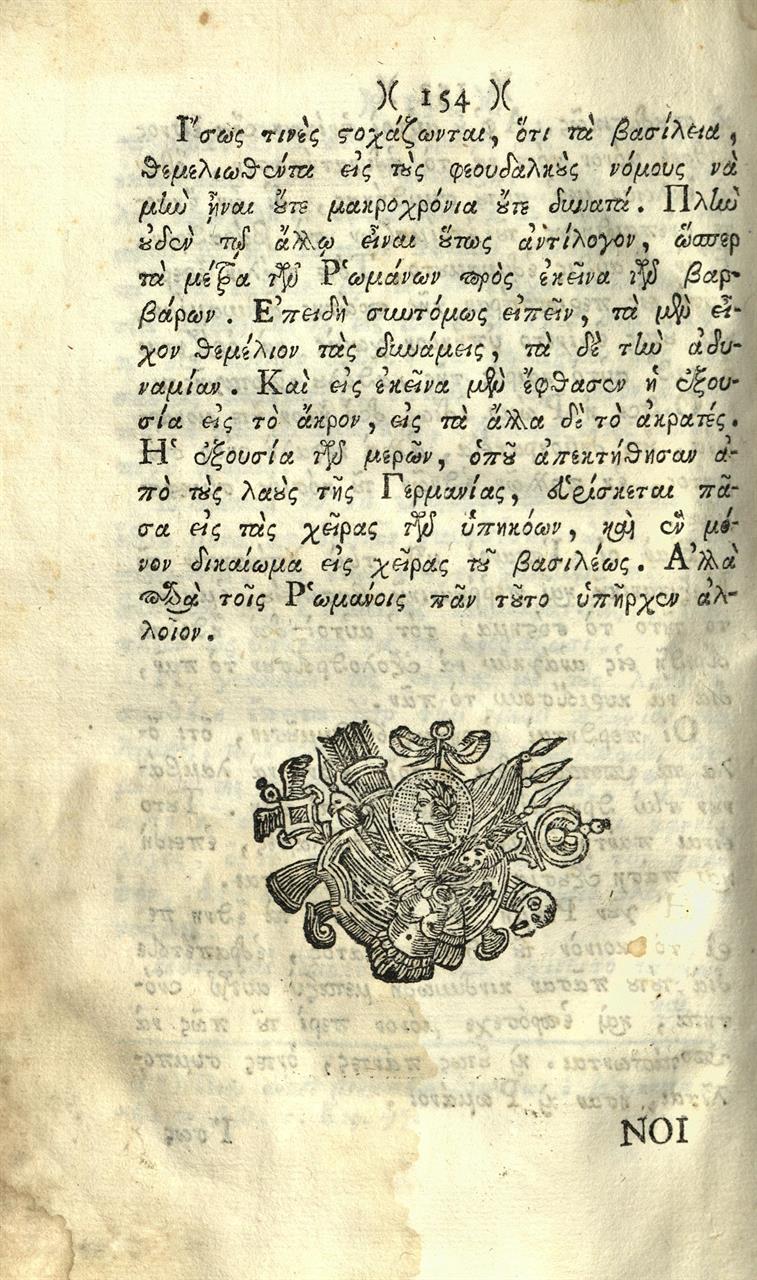 )( 154 )(
Ἴσως τινὲς στοχάζωνται, ὅτι τὰ βασίλεια,
θεμελιωθέντα εἰς τοὺς φεουδαλικοὺς νόμους νὰ
μὴν ᾖναι οὔτε μακροχρόνια οὔτε δυνατά. Πλὴν
οὐδὲν τῷ ἄλλῳ εἶναι οὕτως ἀντίλογον, ὥσπερ
τὰ μέτρα τῶν Ῥωμάνων πρὸς ἐκεῖνα τῶν βαρ-
βάρων. Ἐπειδὴ συντόμως εἰπεῖν, τὰ μὲν εἶ-
χον θεμέλιον τὰς δυνάμεις, τὰ δὲ τὴν ἀδυ-
ναμίαν. Καὶ εἰς ἐκεῖνα μὲν ἔφθασεν ἡ ἐξου-
σία εἰς τὸ ἄκρον, εἰς τὰ ἄλλα δὲ τὸ ἀκρατές.
Ἡ ἐξουσία τῶν μερῶν, ὁποῦ ἀπεκτήθησαν ἀ-
πὸ τοὺς λαοὺς τῆς Γερμανίας, εὑρίσκεται πᾶ-
σα εἰς τὰς χεῖρας τῶν ὑπηκόων, καὶ ἓν μό-
νον δικαίωμα εἰς χεῖρας τοῦ βασιλέως. Ἀλλὰ
παρὰ τοῖς Ῥωμάνοις πᾶν τοῦτο ὑπῆρχεν ἀλ-
λοῖον.
ΝΟΙ